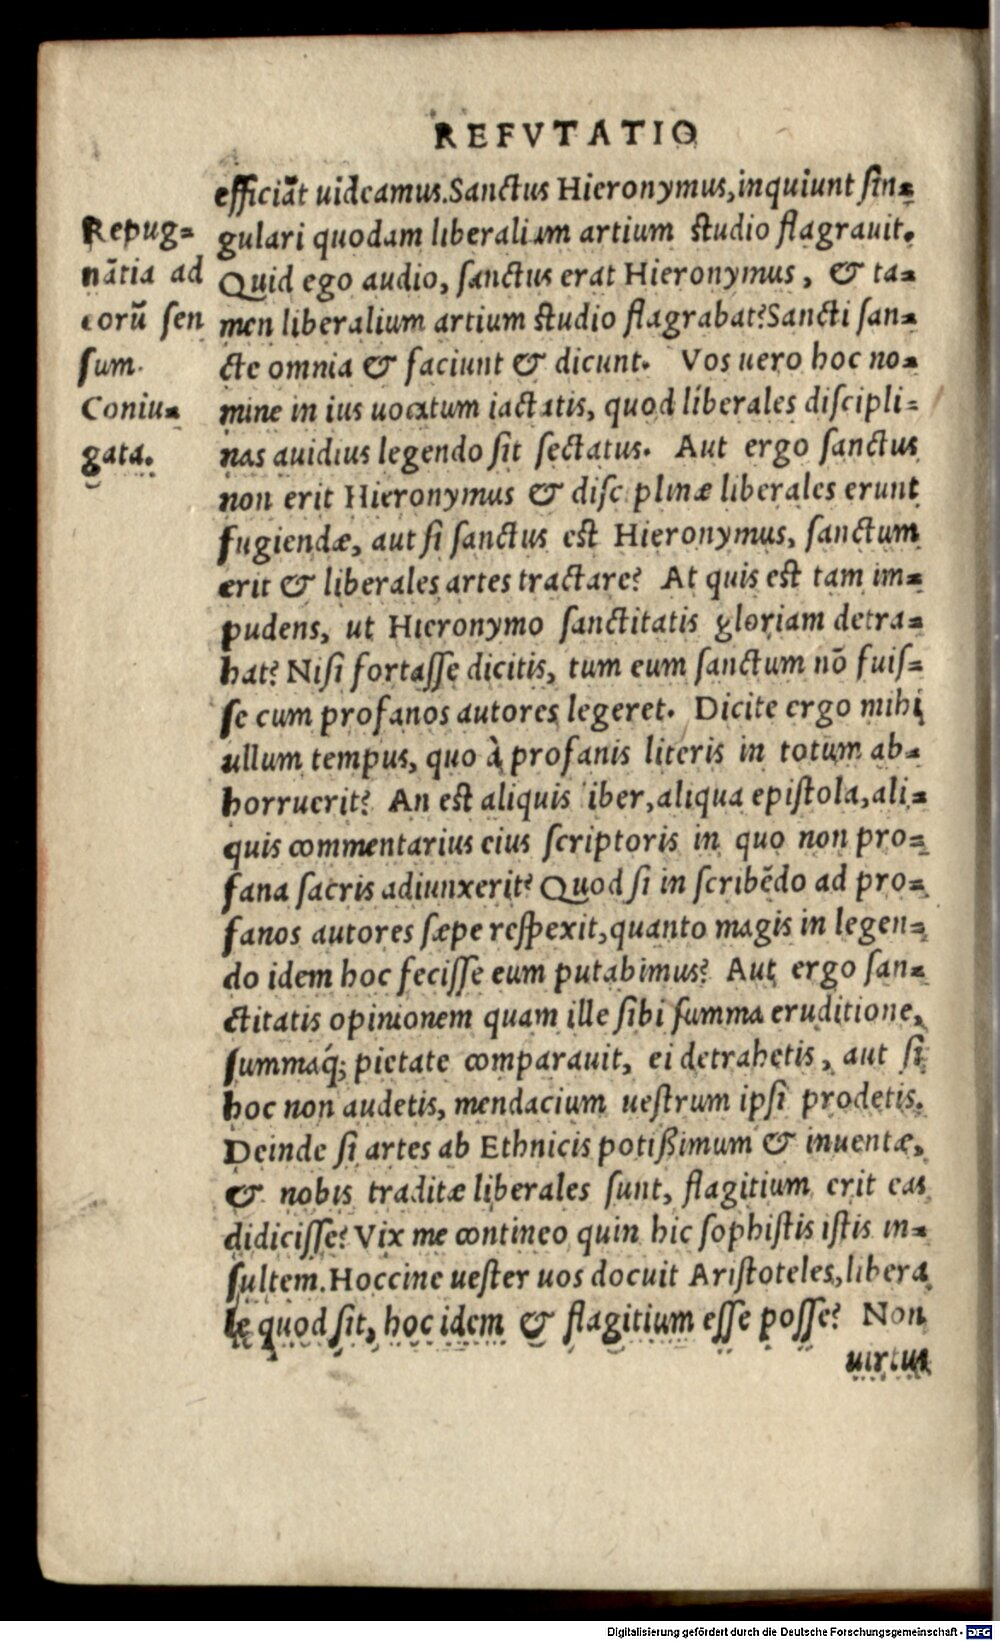 REFVTATIO
efficiāt uideamus. Sanctus Hieronymus, inquiunt sin=
gulari quodam liberalium artium studio flagrauit.
Quid ego audio, sanctus erat Hieronymus, & ta=
men liberalium artium studio flagrabat? Sancti san=
cte omnia & faciunt & dicunt. Vos uero hoc no=
mine in ius uocatum iactatis, quod liberales discipli=
nas auidius legendo sit sectatus. Aut ergo sanctus
non erit Hieronymus & disc plinæ liberales erunt
fugiendæ, aut si sanctus est Hieronymus, sanctum
erit & liberales artes tractare? At quis est tam im=
pudens, ut Hieronymo sanctitatis gloriam detra=
hat? Nisi fortasse dicitis, tum eum sanctum nō fuis=
se cum profanos autores legeret. Dicite ergo mihi
ullum tempus, quo à profanis literis in totum ab=
horruerit? An est aliquis iber, aliqua epistola, ali=
quis commentarius eius scriptoris in quo non pro=
fana sacris adiunxerit? Quod si in scribēdo ad pro=
fanos autores sæpe respexit, quanto magis in legen=
do idem hoc fecisse eum putabimus? Aut ergo san=
ctitatis opinionem quam ille sibi summa eruditione,
summaq́; pietate comparauit, ei detrahetis, aut si
hoc non audetis, mendacium uestrum ipsi prodetis.
Deinde si artes ab Ethnicis potißimum & inuentæ,
& nobis traditæ liberales sunt, flagitium erit eas
didicisse? Vix me contineo quin hic sophistis istis in=
sultem. Hoccine uester uos docuit Aristoteles, libera
le quod sit, hoc idem & flagitium esse posse? Non
uirtus
Repug=
nātia ad
eorū sen
sum.
Coniu=
gata.
Digitalisierung gefördert durch die Deutsche Forschungsgemeinschaft - DFG